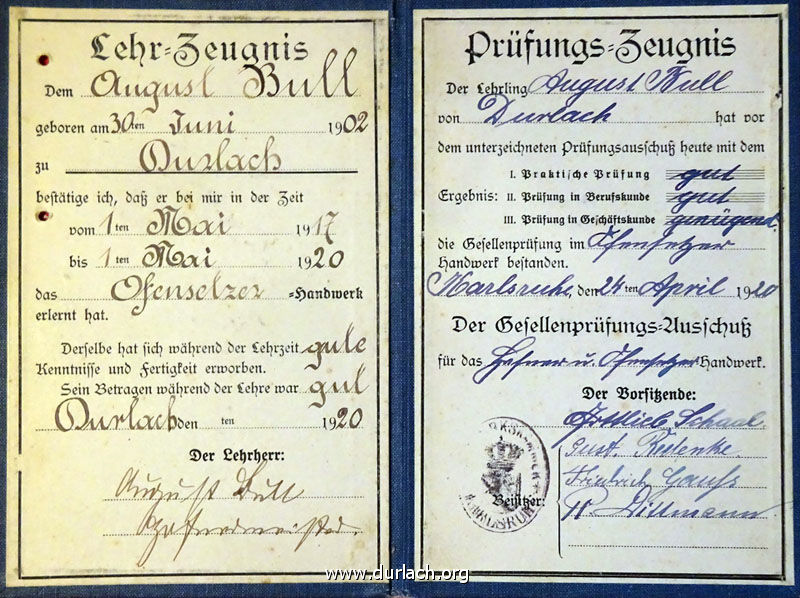 Lehr=Zeugnis
Dem August Bull
geboren am 30ten Juni 1902
zu Durlach
bestätige ich, daß er bei mir in der Zeit
vom 1ten Mai 1917
bis 1ten Mai 1920
das Ofensetzer =Handwerk
erlernt hat.
Derselbe hat sich während der Lehrzeit gute
Kenntnisse und Fertigkeit erworben.
Sein Betragen während der Lehre war gut
Durlach den ten 1920
Der Lehrherr:
August Bull
Hafnermeister.
Prüfungs=Zeugnis
Der Lehrling August Bull
von Durlach hat vor
dem unterzeichneten Prüfungsausschuß heute mit dem
I. Praktische Prüfung gut
Ergebnis: II. Prüfung in Berufskunde gut
III. Prüfung in Geschäftskunde genügend
die Gesellenprüfung im Ofensetzer
Handwerk bestanden.
Karlsruhe, den 24ten April 1920
Der Gesellenprüfungs=Ausschuß
für das Hafner u. Ofensetzer Handwerk.
Der Vorsitzende:
Gottlieb Schaal
Gust.
Friedrich Gauss
Beisitzer:
W. Dittmann
KARLSRUHE
www.durlach.org